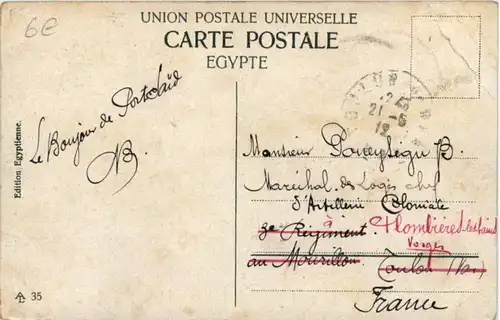 6€
UNION POSTALE UNIVERSELLE
CARTE POSTALE
EGYPTE
Le Bonjour de Portsaïd
Edition Egyptienne.
35
21 -5
12
Monsieur Poueytegu B.
Maréchal des Logis chef
d'Artillerie Coloniale
3e Régiment. à Plombières-les-Bains
Vosges
au Mourillon Toulon (Var)
France